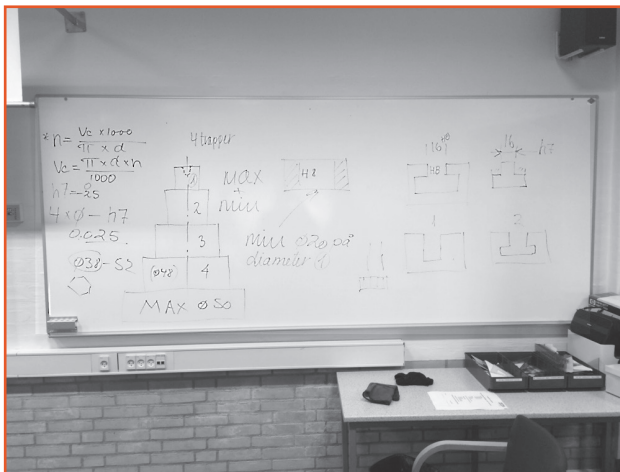 * n = Vc x 1000
π x d
Vc = π x d x n
1000
h7 = 0 -25
4 x Ø – h7
0.025.
Ø38 – 52
4 trapper
2
3
(Ø48) 4
MAX Ø 50
MAX
+
min
H8
min 0.20 på
diameter
16 H8
H8
16 h7
1
2